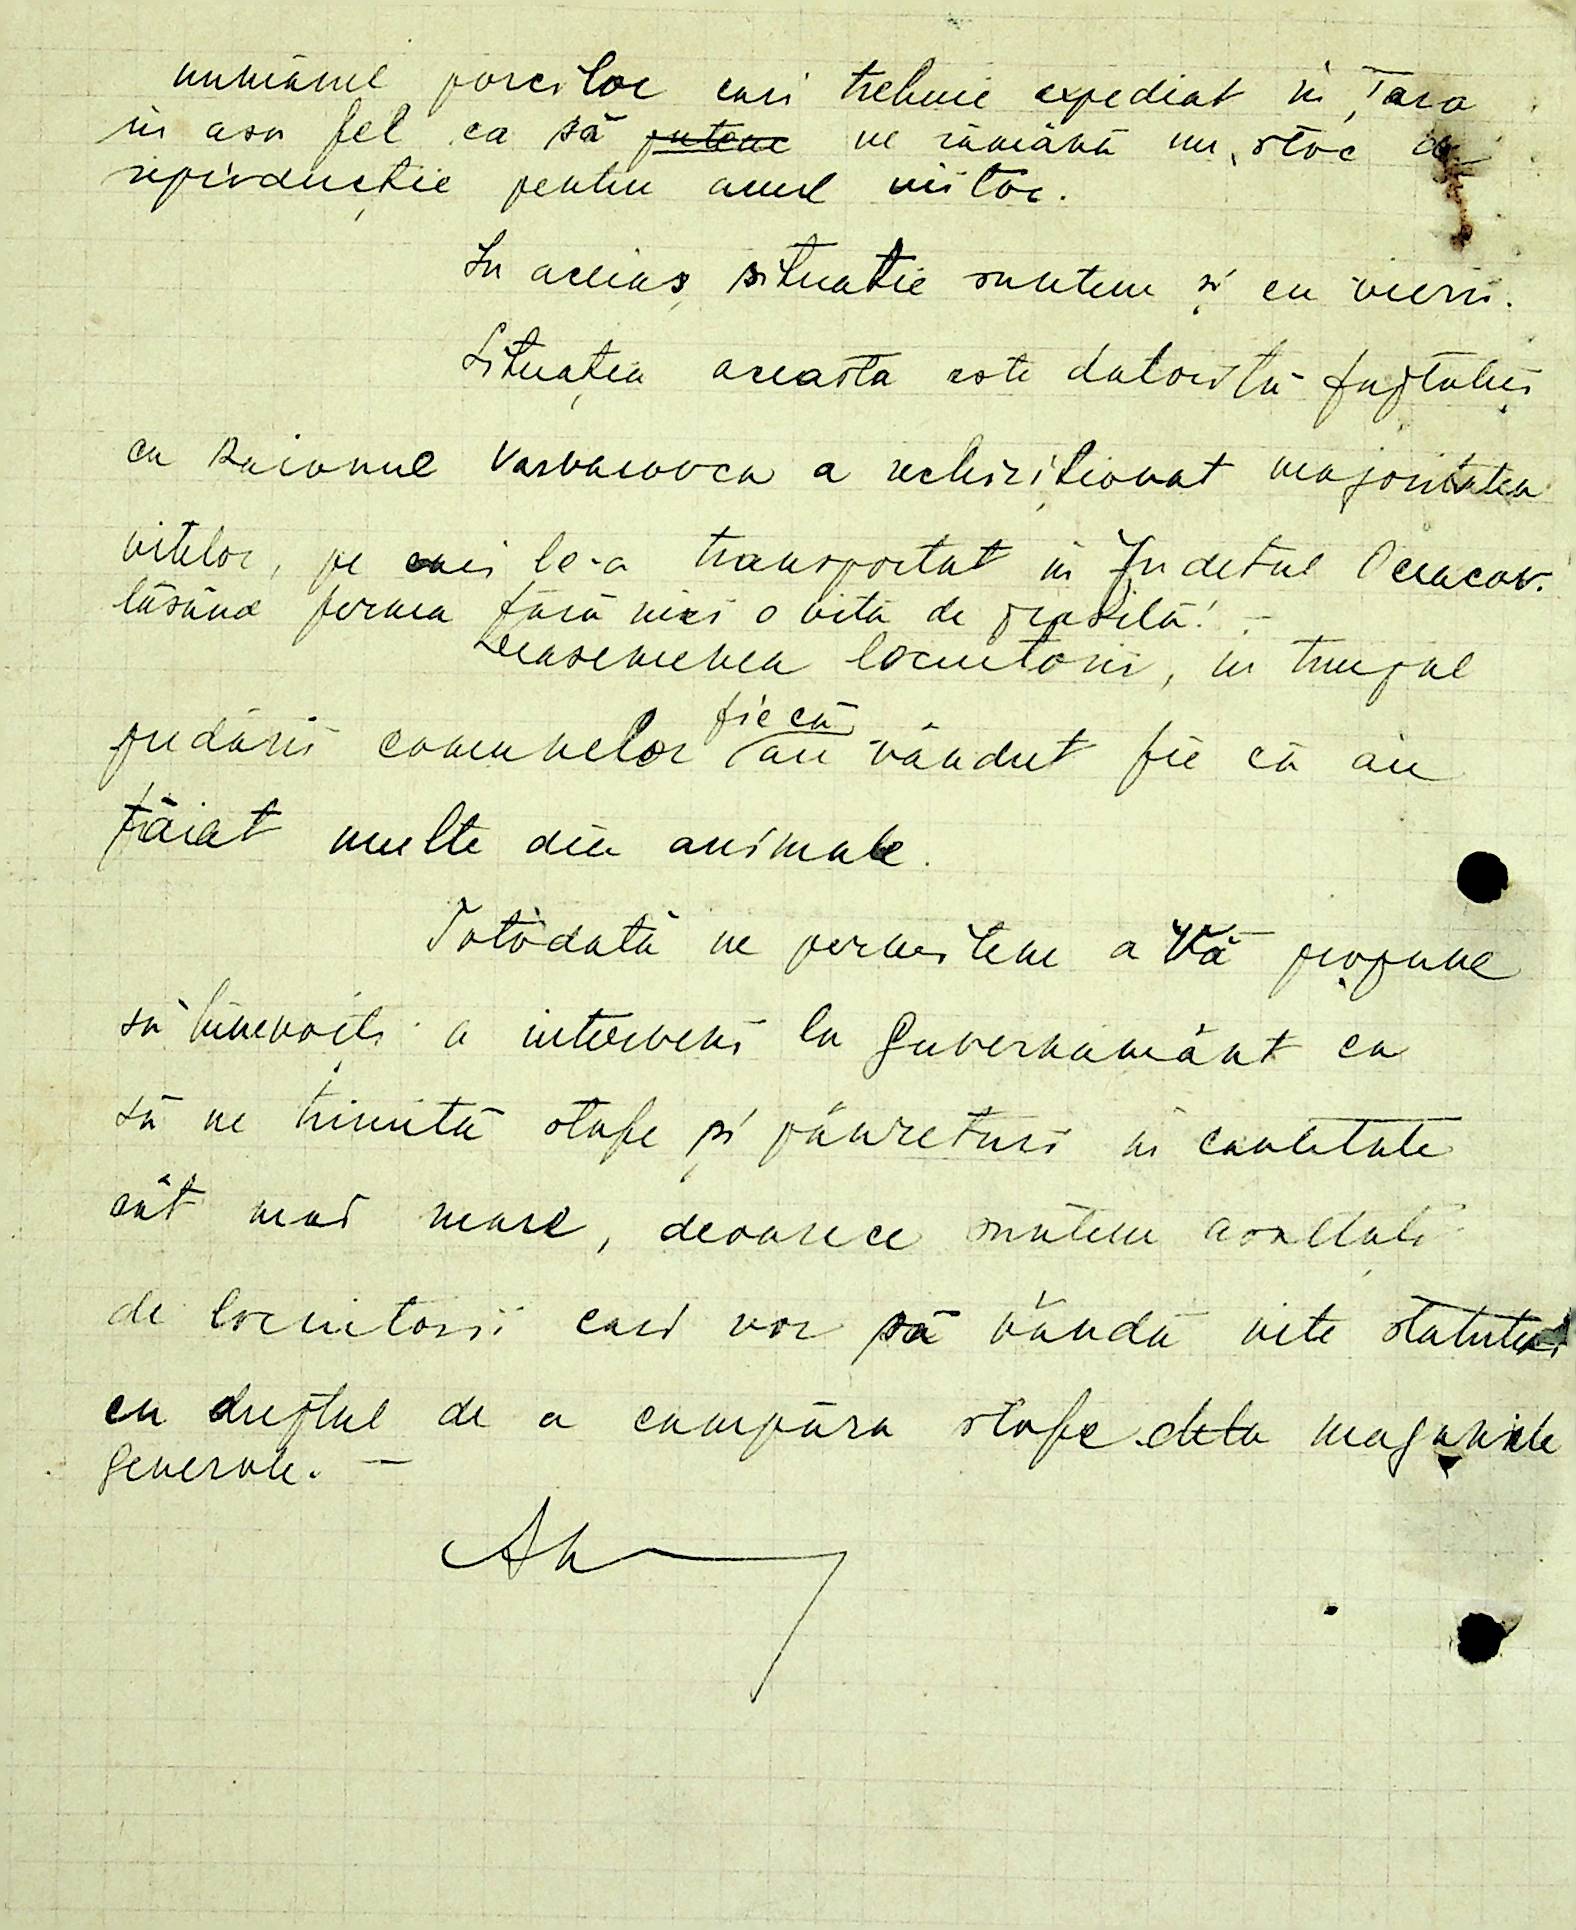 numărul porcilor cari trebuie expediat în Țara
în așa fel ca să putem ne rămână un stoc de
reproducție pentru anul viitor.
In aceiaș situație suntem și cu vierii.
Situația aceasta este datorită faptului
că Raionul Varvarovca a rechiziționat majoritatea
vitelor, pe cari le-a transportat în Județul Oceacov.
lăsând ferma fără nici o vită de prăsilă! -
Deasemenea locuitorii, în timpul
predării comunelor fie că au vândut fie că au
tăiat multe din animale.
Totodată ne permitem a Vă propune
să binevoiți a interveni la Guvernământ ca
să ne trimită stofe și pânzeturi în cantitate
cât mai mare, deoarece suntem asaltați
de locuitorii cari vor să vândă vite statului
cu dreptul de a cumpăra stofe dela magaziile
generale. -